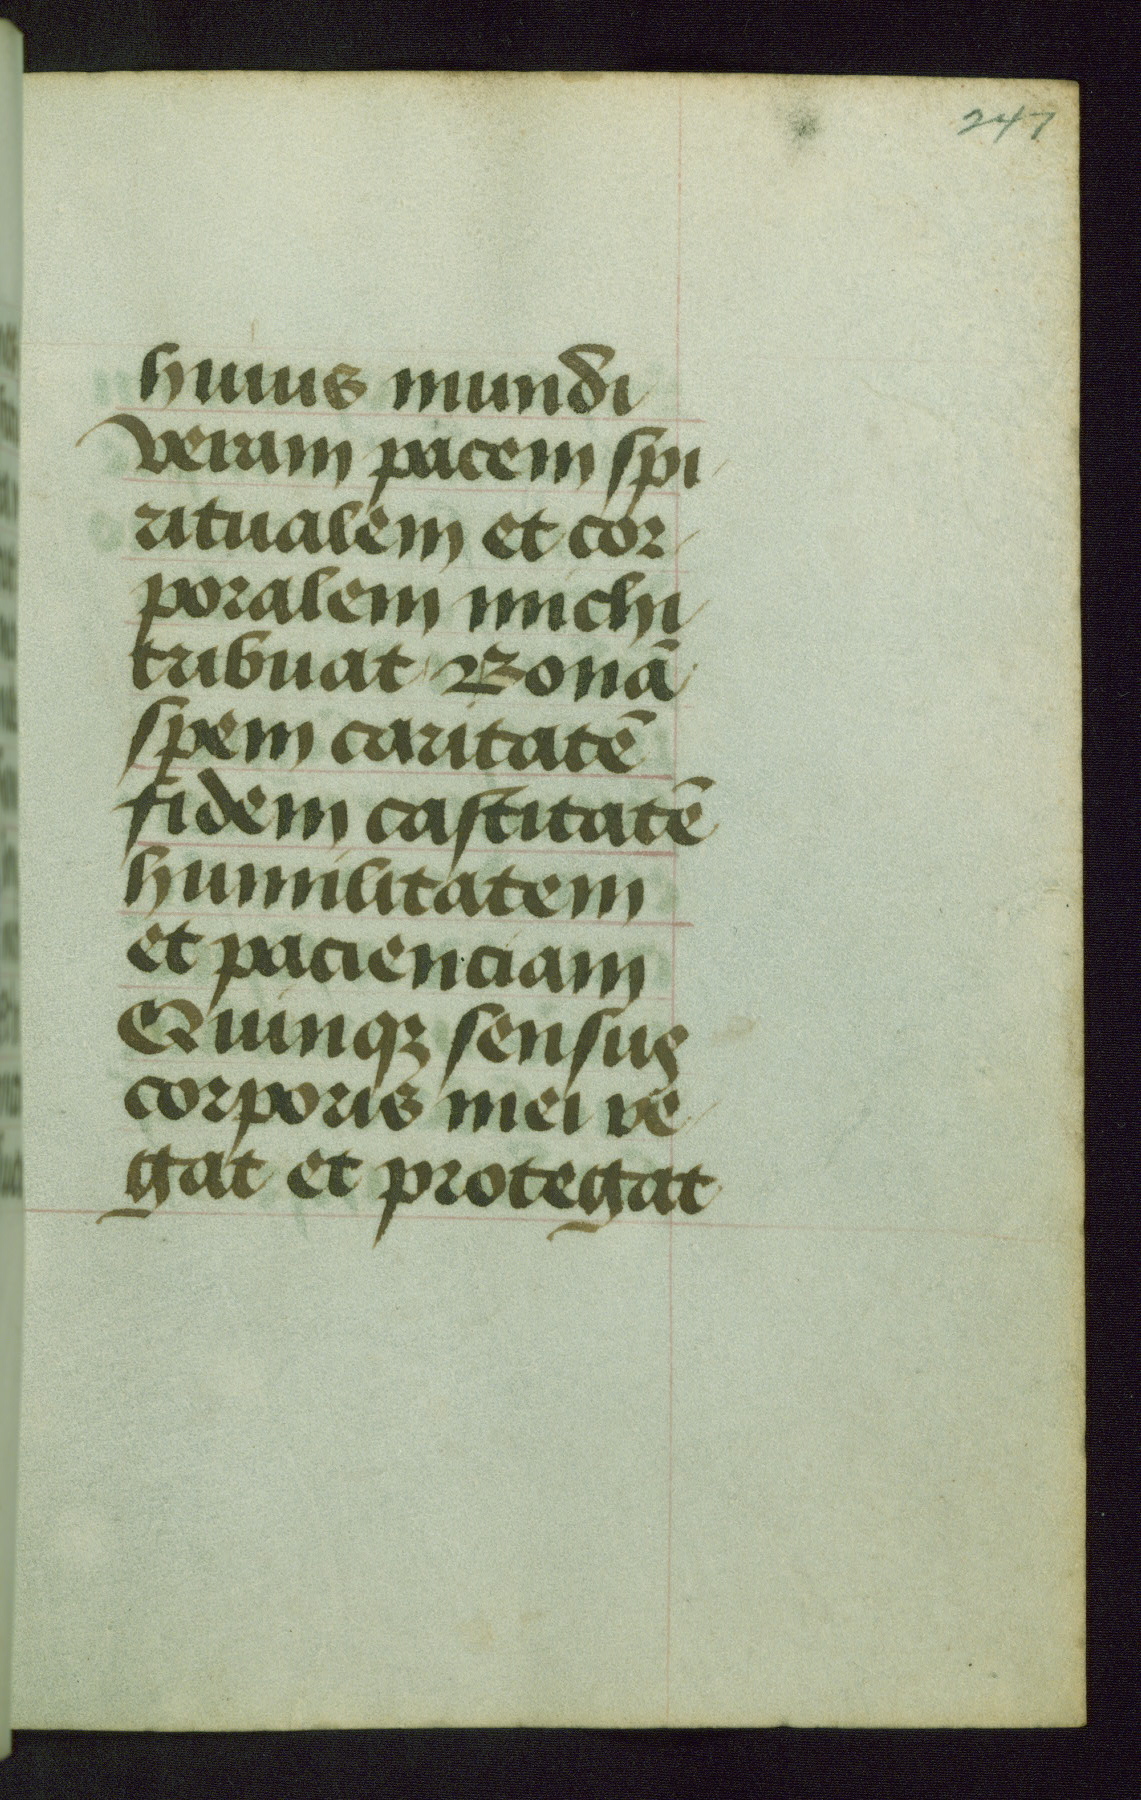 247
huius mundi
veram pacem spi
ritualem et cor
poralem michi
tribuat Bonā
spem caritatē
fidem castitatē
humilitatem
et pacienciam
Quinqꝫ sensus
corporis mei re
gat et protegat